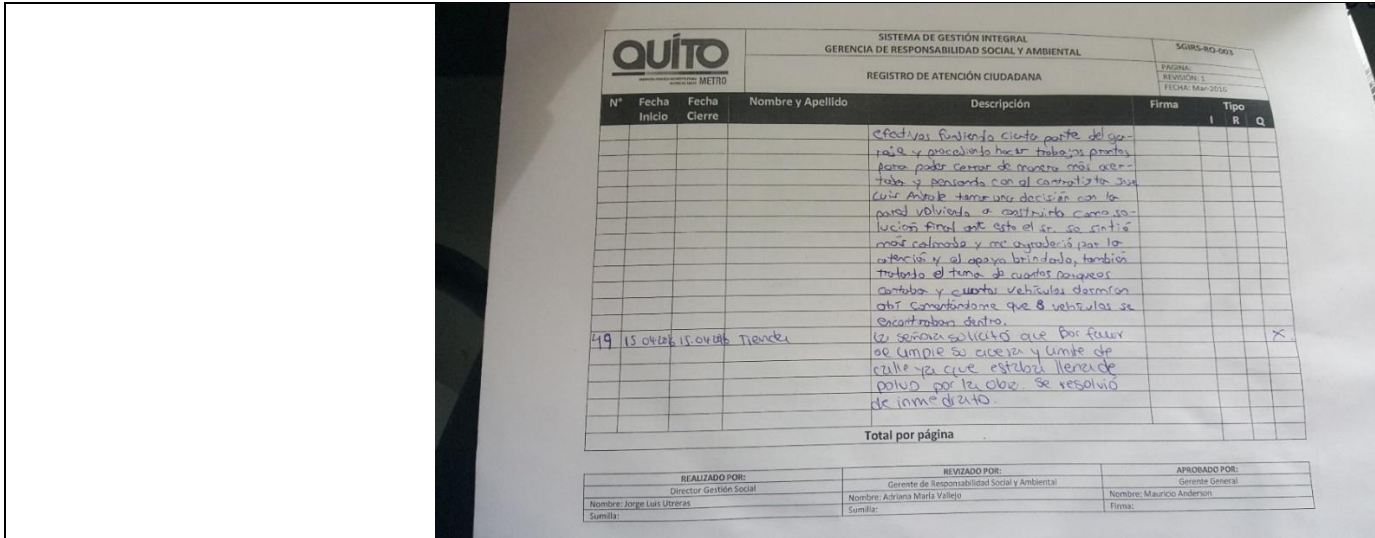 QUITO
METRO
SISTEMA DE GESTIÓN INTEGRAL
GERENCIA DE RESPONSABILIDAD SOCIAL Y AMBIENTAL
REGISTRO DE ATENCIÓN CIUDADANA
SGIRS-RO-003
PAGINA:
REVISIÓN: 1
FECHA: Mar-2016
N° Fecha Inicio Fecha Cierre Nombre y Apellido Descripción Firma Tipo
I R Q
efectivos fundiendo cierta parte del ga-
raje y procediendo hacer trabajos prontos
para poder cerrar de manera más acer-
tada y pensando con el contratista Jose
Luis Andrade tomar una decisión con la
pared volviendo a construirla como so-
lución final ante esto el sr. se sintió
más calmado y me agradeció por la
atención y el apoyo brindado, también
tratando el tema de cuantos parqueos
contaba y cuantos vehículos dormían
ahí comentándome que 8 vehículos se
encontraban dentro.
49 15.04.2016 15.04.2016 Tienda la señora solicitó que por favor X
se limpie su acera y limite de
calle ya que estaba llena de
polvo por la obra. Se resolvió
de inmediato.
Total por página
REALIZADO POR:
Director Gestión Social
Nombre: Jorge Luis Utreras
Sumilla:
REVIZADO POR:
Gerente de Responsabilidad Social y Ambiental
Nombre: Adriana María Vallejo
Sumilla:
APROBADO POR:
Gerente General
Nombre: Mauricio Anderson
Firma: